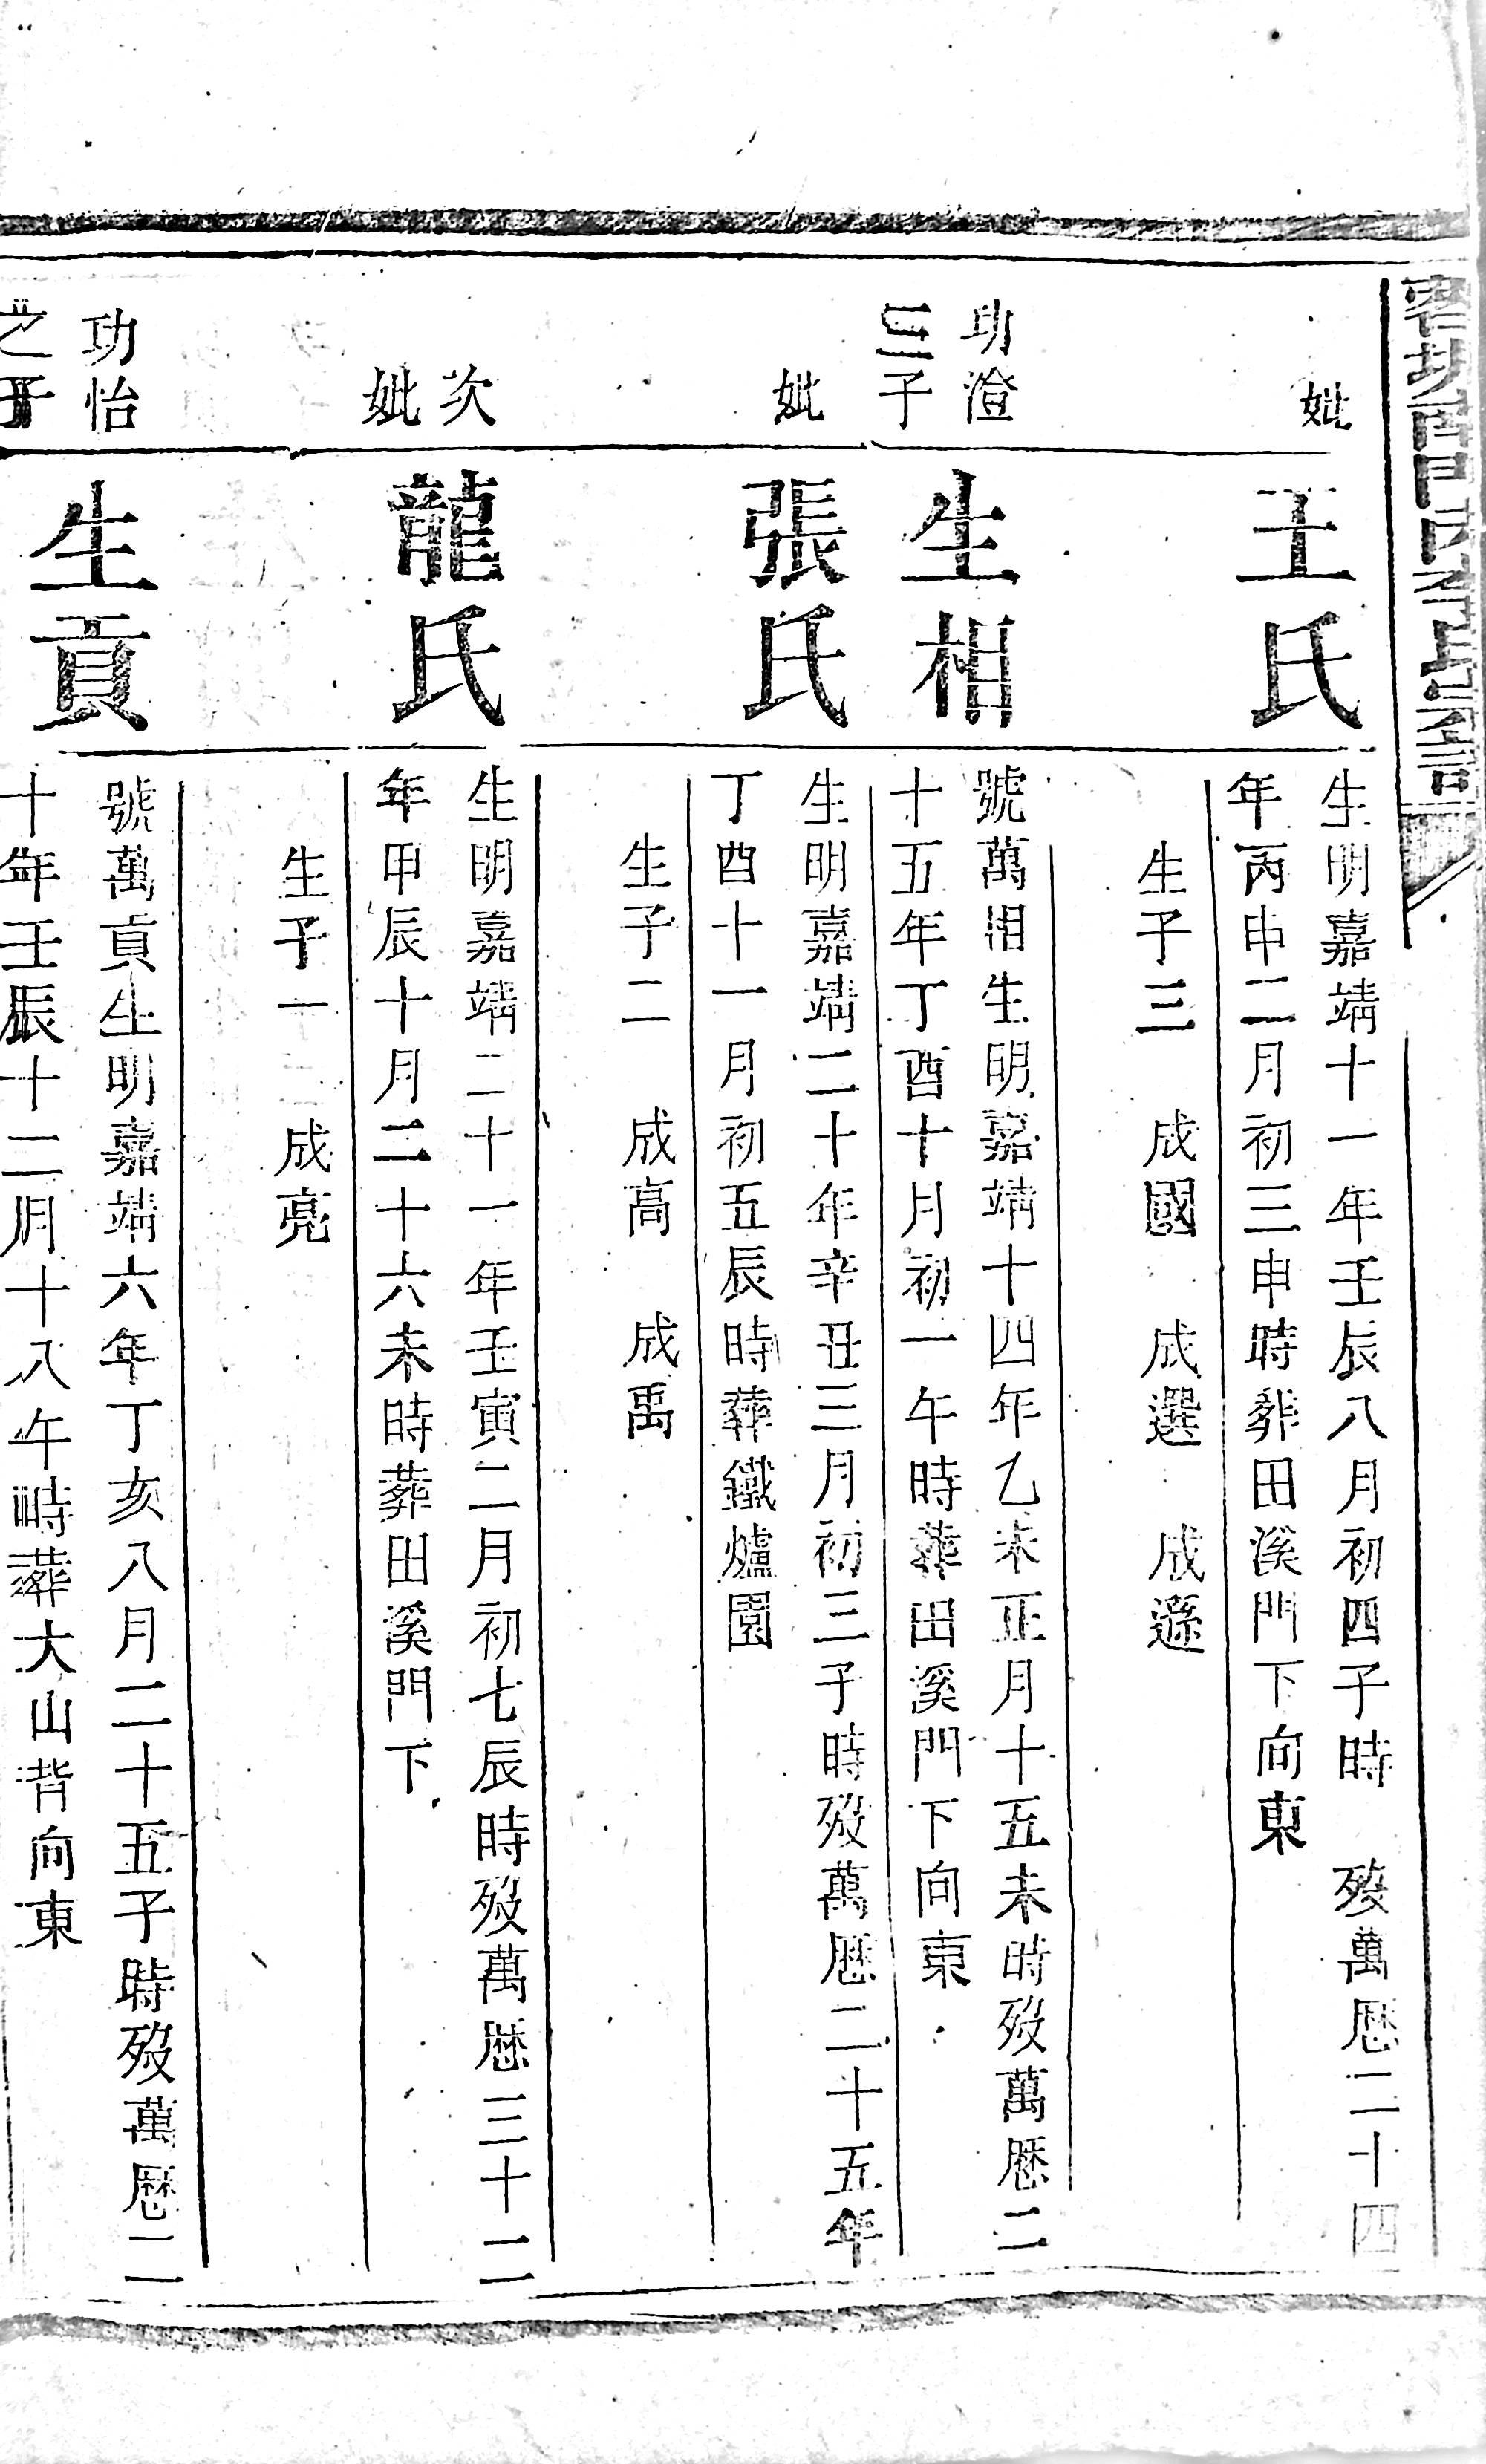 妣
王氏
生明嘉靖十一年壬辰八月初四子時 歿萬歷二十四
年丙申二月初三申時葬田溪門下向東
生子三 成國 成選 成遜
功澄
三子
生相
號萬相生明嘉靖十四年乙未正月十五未時歿萬歷二
十五年丁酉十月初一午時葬田溪門下向東
妣
張氏
生明嘉靖二十年辛丑三月初三子時歿萬歷二十五年
丁酉十一月初五辰時葬鐵爐園
生子二 成高 成禹
次
妣
龍氏
生明嘉靖二十一年壬寅二月初七辰時歿萬歷三十二
年甲辰十月二十六未時葬田溪門下
生子一 成亮
功怡
之子
生貢
號萬貢生明嘉靖六年丁亥八月二十五子時歿萬歷二
十年壬辰十二月十八午時葬大山背向東